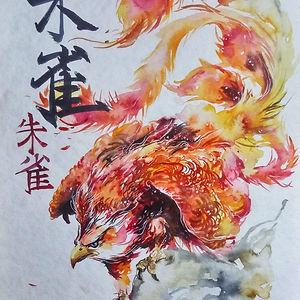 朱雀
朱雀